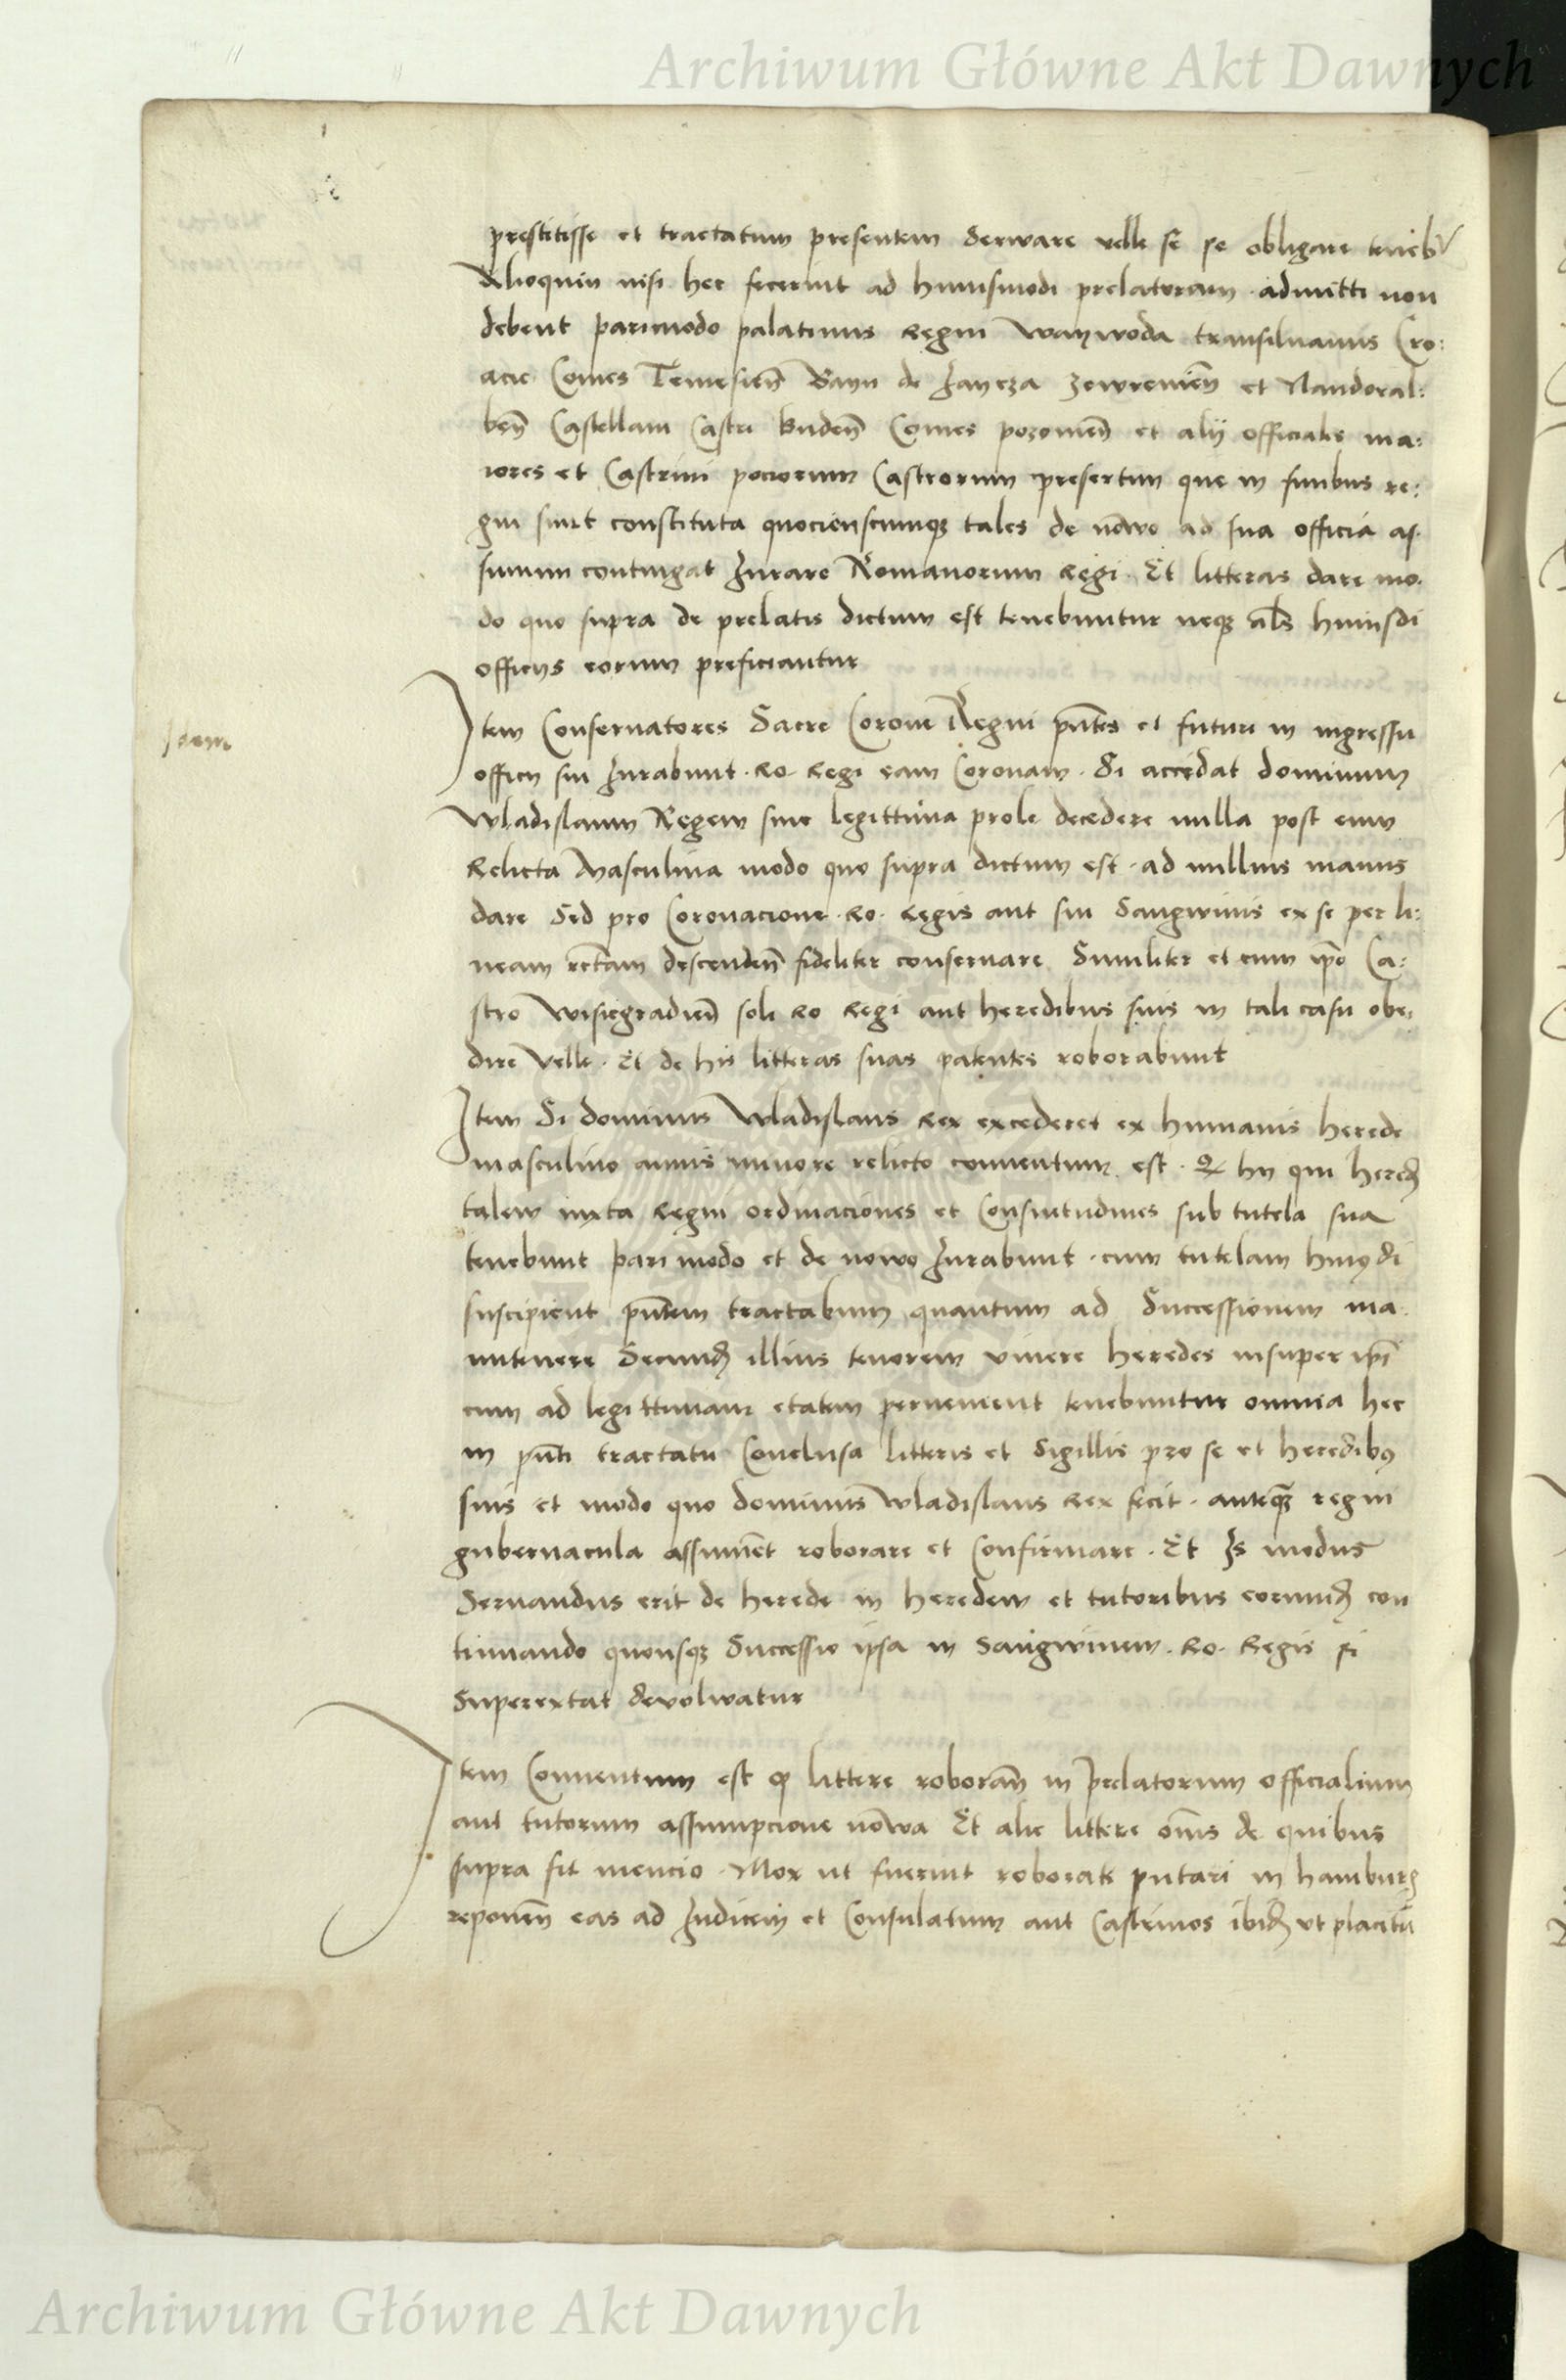 Archiwum Główne Akt Dawnych
prestitisse et tractatum presentem Serware velle sē pe obligare tenēb̄
Alioquin nisi hec fecerint ad huiusmodi prelaturam admitti non
debent parimodo palatinus Regni Waywoda transiluanus Cro:
acie Comes Temesień Bani de Jaycza Zewrenień et Nandoral:
beń Castellani Castri Budeń Comes pozonień et alij officiales ma:
iores et Castrini pociorum Castrorum presertim que in finibus re:
gni sunt constituta quocienscumqꝫ tales de nōwo ad sua officia as
sumim contingat Jurare Romanorum Regi. Et litteras dare mo
do quo supra de prelatis dictum est tenebuntur neqꝫ als̄ huiusdi
officijs eorum preficiantur
Item Conservatores Sacre Corone Regni pn̄tes et futuri in ingressu
officij sui Jurabunt. Ro. Regi eam Coronam. Si accedat dominum
Wladislaum Regem sine legittima prole decedere nulla post eum
Relicta Masculina modo quo supra dictum est. ad nullius manus
dare Sed pro Coronacione. Ro. Regis aut sui Sangwinis ex se per li:
neam rectam descendeń fideliter conseruare Similiter et cum ip̄o Ca:
stro Wisiegradień soli Ro Regi aut heredibus suis in tali casu obe:
dire Velle. Et de his litteras suas patentes roborabunt
Idem
Item Si dominus Wladislaus Rex excederet ex humanis herede
masculino annis minore relicto conuentum est. Ꝙ hij qui hered̄
talem iuxta Regni ordinaciones et Consuetudines sub tutela sua
tenebunt pari modo et de nowo Jurabunt. cum tutelam huiꝰdi
suscipient pn̄tem tractatum quantum ad Successionem ma
nutenere Secund̄ illius tenorem viuere heredes insuper ip̄i
cum ad legittimam etatem peruenient tenebuntur omnia hec
in pn̄ti tractatu Conclusa litteris et Sigillis pro se et heredibꝰ
suis et modo quo dominus Wladislaus Rex fecit. anteqꝫ regni
gubernacula assumēt roborare et Confirmare. Et Is modus
Seruandus erit de herede in heredem et tutoribus eorund̄ con
tinuando quousqꝫ Successio ipsa in Sangwinem. Ro. Regis si
Superextat devolwatur
Item Conuentum est ꝙ littere roborań in prelatorum officialium
aut tutorum assumpcione nōwa Et alie littere om̄s de quibus
supra fit mencio. Mox ut fuerint roborate putari in hamburg
reponeń eas ad Judicem et Consulatum aut Castrinos ibid̄ vt placitū
Archiwum Główne Akt Dawnych